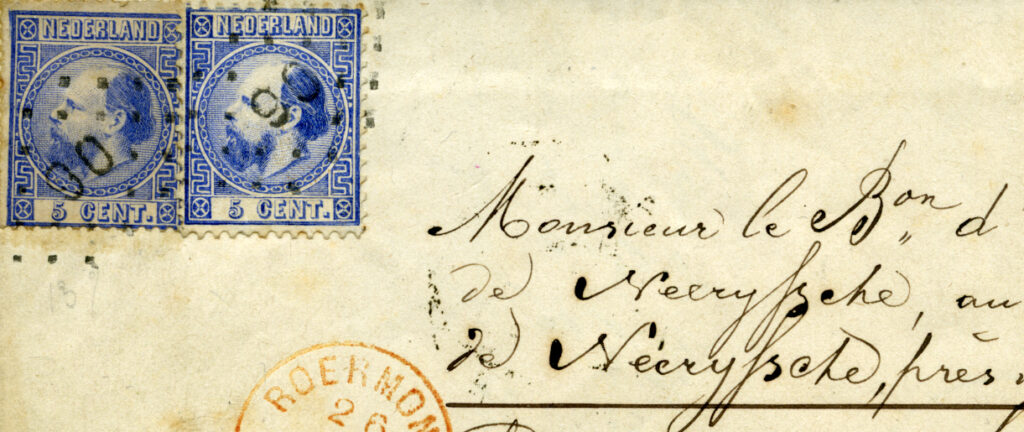 NEDERLAND
5 CENT.
NEDERLAND
5 CENT.
90
Monsieur le Bon d
de Neeryssche, au
de Néeryssche, près
ROERMON
26